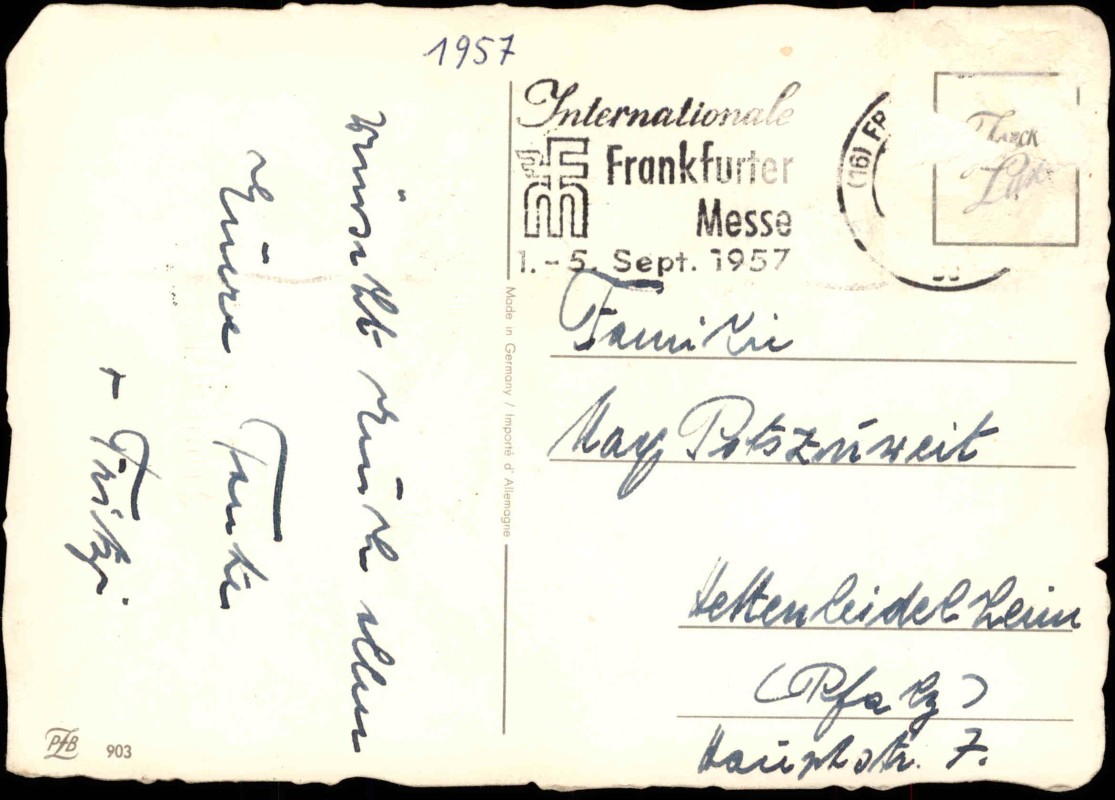 1957
wünscht Euch allen
Eure Tante
+ Fritz.
Internationale
Frankfurter
Messe
1.-5. Sept. 1957
(16) FR
Made in Germany / Importé d'Allemagne
Familie
Max Potszuweit
Hettenleidelheim
(Pfalz)
Hauptstr. 7.
PFB 903